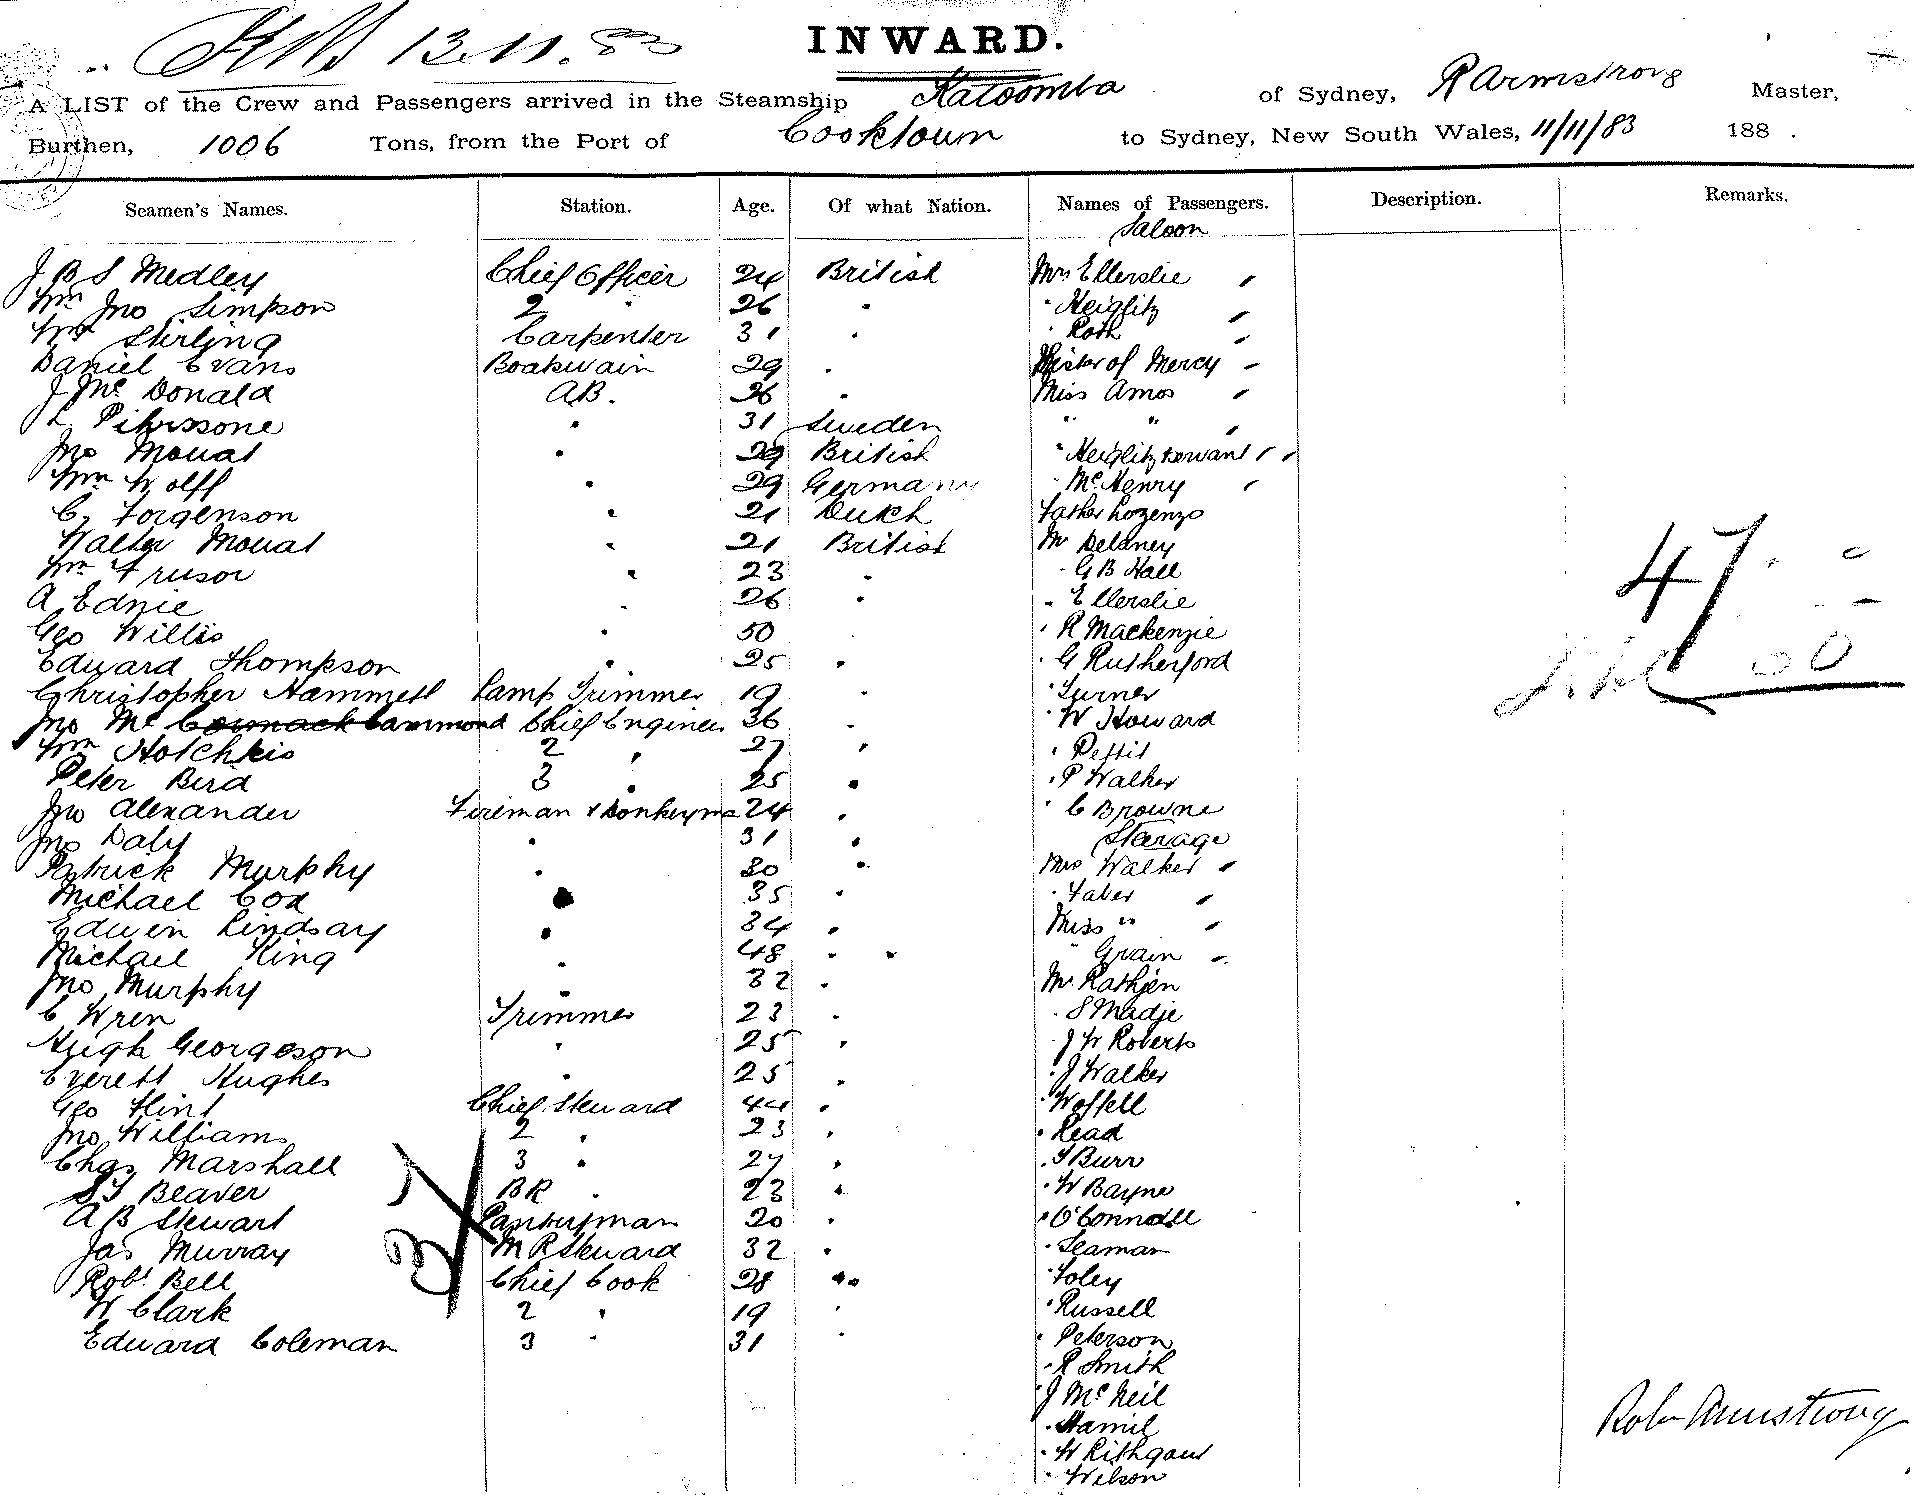 13.11.83
INWARD.
A LIST of the Crew and Passengers arrived in the Steamship Katoomba of Sydney, R Armstrong Master,
Burthen, 1006 Tons, from the Port of Cooktown to Sydney, New South Wales, 11/11/83 188 .
Seamen's Names. Station. Age. Of what Nation. Names of Passengers. Description. Remarks.
Saloon
J B S Medley Chief Officer 24 British Mrs Ellerslie "
Wm Jno Simpson 2 " 26 " " Heiglitz "
Wm Stirling Carpenter 31 " " Roth "
Daniel Evans Boatswain 29 " Sister of Mercy "
J Mc Donald A.B. 26 " Miss Amos "
L Pihrssone " 31 Sweden " " "
Jno Mouat " 29 British " Heiglitz servant " "
Wm Wolff " 29 Germany " McHenry "
C. Forgenson " 21 Dutch Father Lozenzo
Walter Mouat " 21 British Mr Delaney
Wm Frusor " 23 " " G B Hall
A Ednie " 26 " " Ellerslie
Geo Willis " 50 " " R Mackenzie
Edward Thompson " 25 " " G Rutherford
Christopher Hammett Lamp Trimmer 19 " " Turner
Jno Mc Cormack Cammond Chief Engineer 36 " " W Howard
Wm Hotchkis 2 " 27 " " Pettit
Peter Bird 3 " 25 " " P Walker
Jno Alexander Fireman & Donkeyma 24 " " C Browne
Jno Daly " 31 " Steerage
Patrick Murphy " 30 " Mrs Walker "
Michael Cox " 35 " " Faber "
Edwin Lindsay " 34 " Miss " "
Michael King " 48 " " " Grain "
Jno Murphy " 32 " Mr Rathjen
C Wren Trimmer 23 " " S Madje
Hugh Georgeson " 25 " " J W Roberts
Everett Hughes " 25 " " J Walker
Geo Flint Chief Steward 44 " " Woffell
Jno Williams 2 " 23 " " Read
Chas Marshall 3 " 27 " " T Burr
S T Beaver BR " 23 " " W Bayne
A B Stewart Pantryman 20 " " O'Connell
Jas Murray M R Steward 32 " " Seaman
Robt. Bell Chief Cook 28 " " Foley
W Clark 2 " 19 " " Russell
Edward Coleman 3 " 31 " " Peterson
" R Smith
" J McNeil
" Hamil
" W Lithgow
" Wilson
37
47
Robt Armstrong